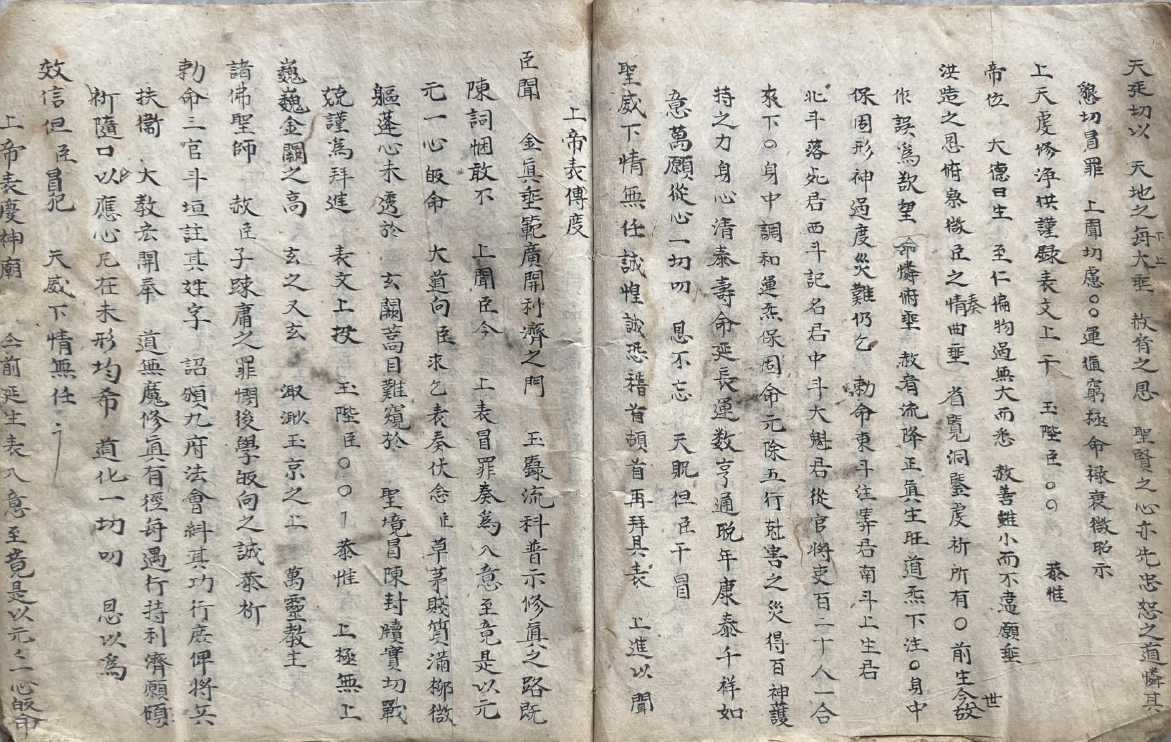 天延切以 天地之每大垂 救育之恩 聖賢之心亦先忠恕之道憐其
懇切冒罪 上聞切慮○○運值窮極命祿衰微昭示
上天虔修净供謹録表文上干 玉陛臣○○ 恭惟
帝位 大德曰生 至仁偏物過無大而悉 赦善雖小而不違願垂
洪造之恩俯察微臣之情曲垂 省覧洞鑒虔祈所有○前生今世故
作誤為欲望 命憐俯垂 赦宥流降正真生旺道炁下注○身中
保固形神過度災難仍乞 勅命東斗注筭君南斗上生君
北斗落死君西斗記名君中斗大魁君從官將吏百二十人一合
來下○身中調和運炁保固命元除五行尅害之災得百神護
持之力身心清泰壽命延長運数亨通晚年康泰千祥如
意萬願從心一切叨 恩不忘 天貺但臣干冒
聖威下情無任誠惶誠恐稽首頓首再拜具表 上進以聞
上帝表傳度
臣聞 金真垂範廣開利濟之門 玉籙流科普示修真之路既
陳詞悃敢不 上聞臣今 上表冒罪奏為入意至竟是以元
元一心皈命 大道向臣求乞表奏伏念臣草茅賤質滿柳微
軀蓬心未透於 玄關蒿目難窺於 聖境冒陳封牘實切戰
兢謹為拜進 表文上投 玉陛臣○○ 恭惟 上極無上
巍巍金闕之高 玄之又玄 溆溆玉京之上 萬靈教主
諸佛聖師 赦臣子踈庸之罪憫後學皈向之誠恭祈
勅命三官斗垣註其姓字 詔頒九府法會糾其功行庶俾將兵
扶衛 大教宏開奉 道無魔修真有徑每遇行持利濟願頒
祈隨口以應心凡在未形均希 道化一切叨 恩以為
效信但臣冒犯 天威下情無任
上帝表慶神廟 今前延生表入意至竟是以元々一心皈命